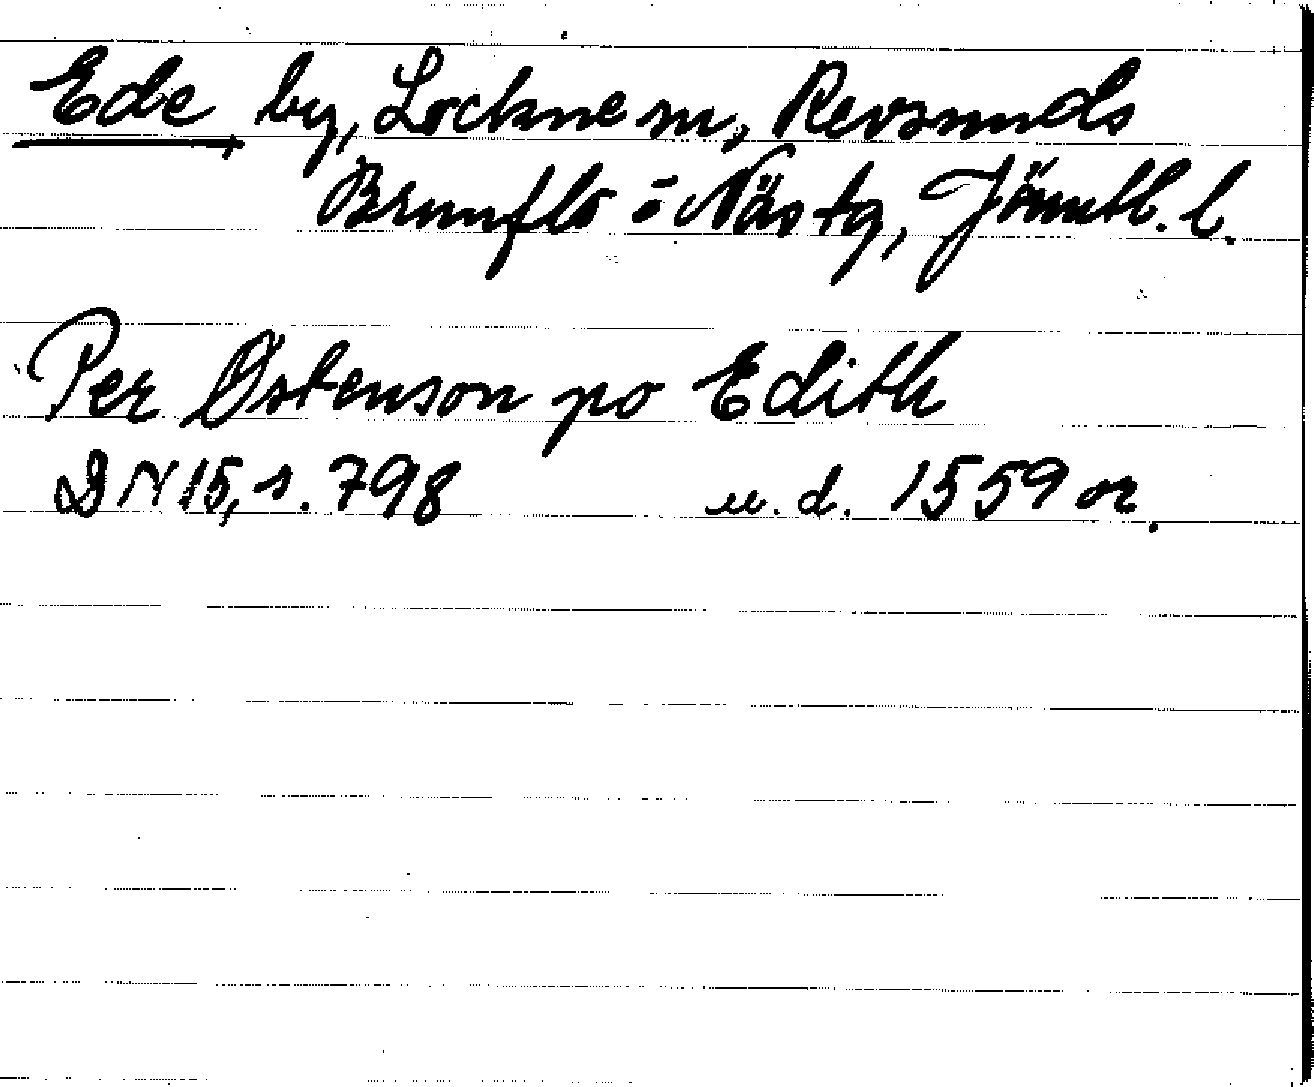 Ede by, Lockne sn, Revsunds
Brunflo ö Näs tg, Jämtl. l.
Per Østenson po Edith
DN 15, s. 798 u. d. 1559 or.